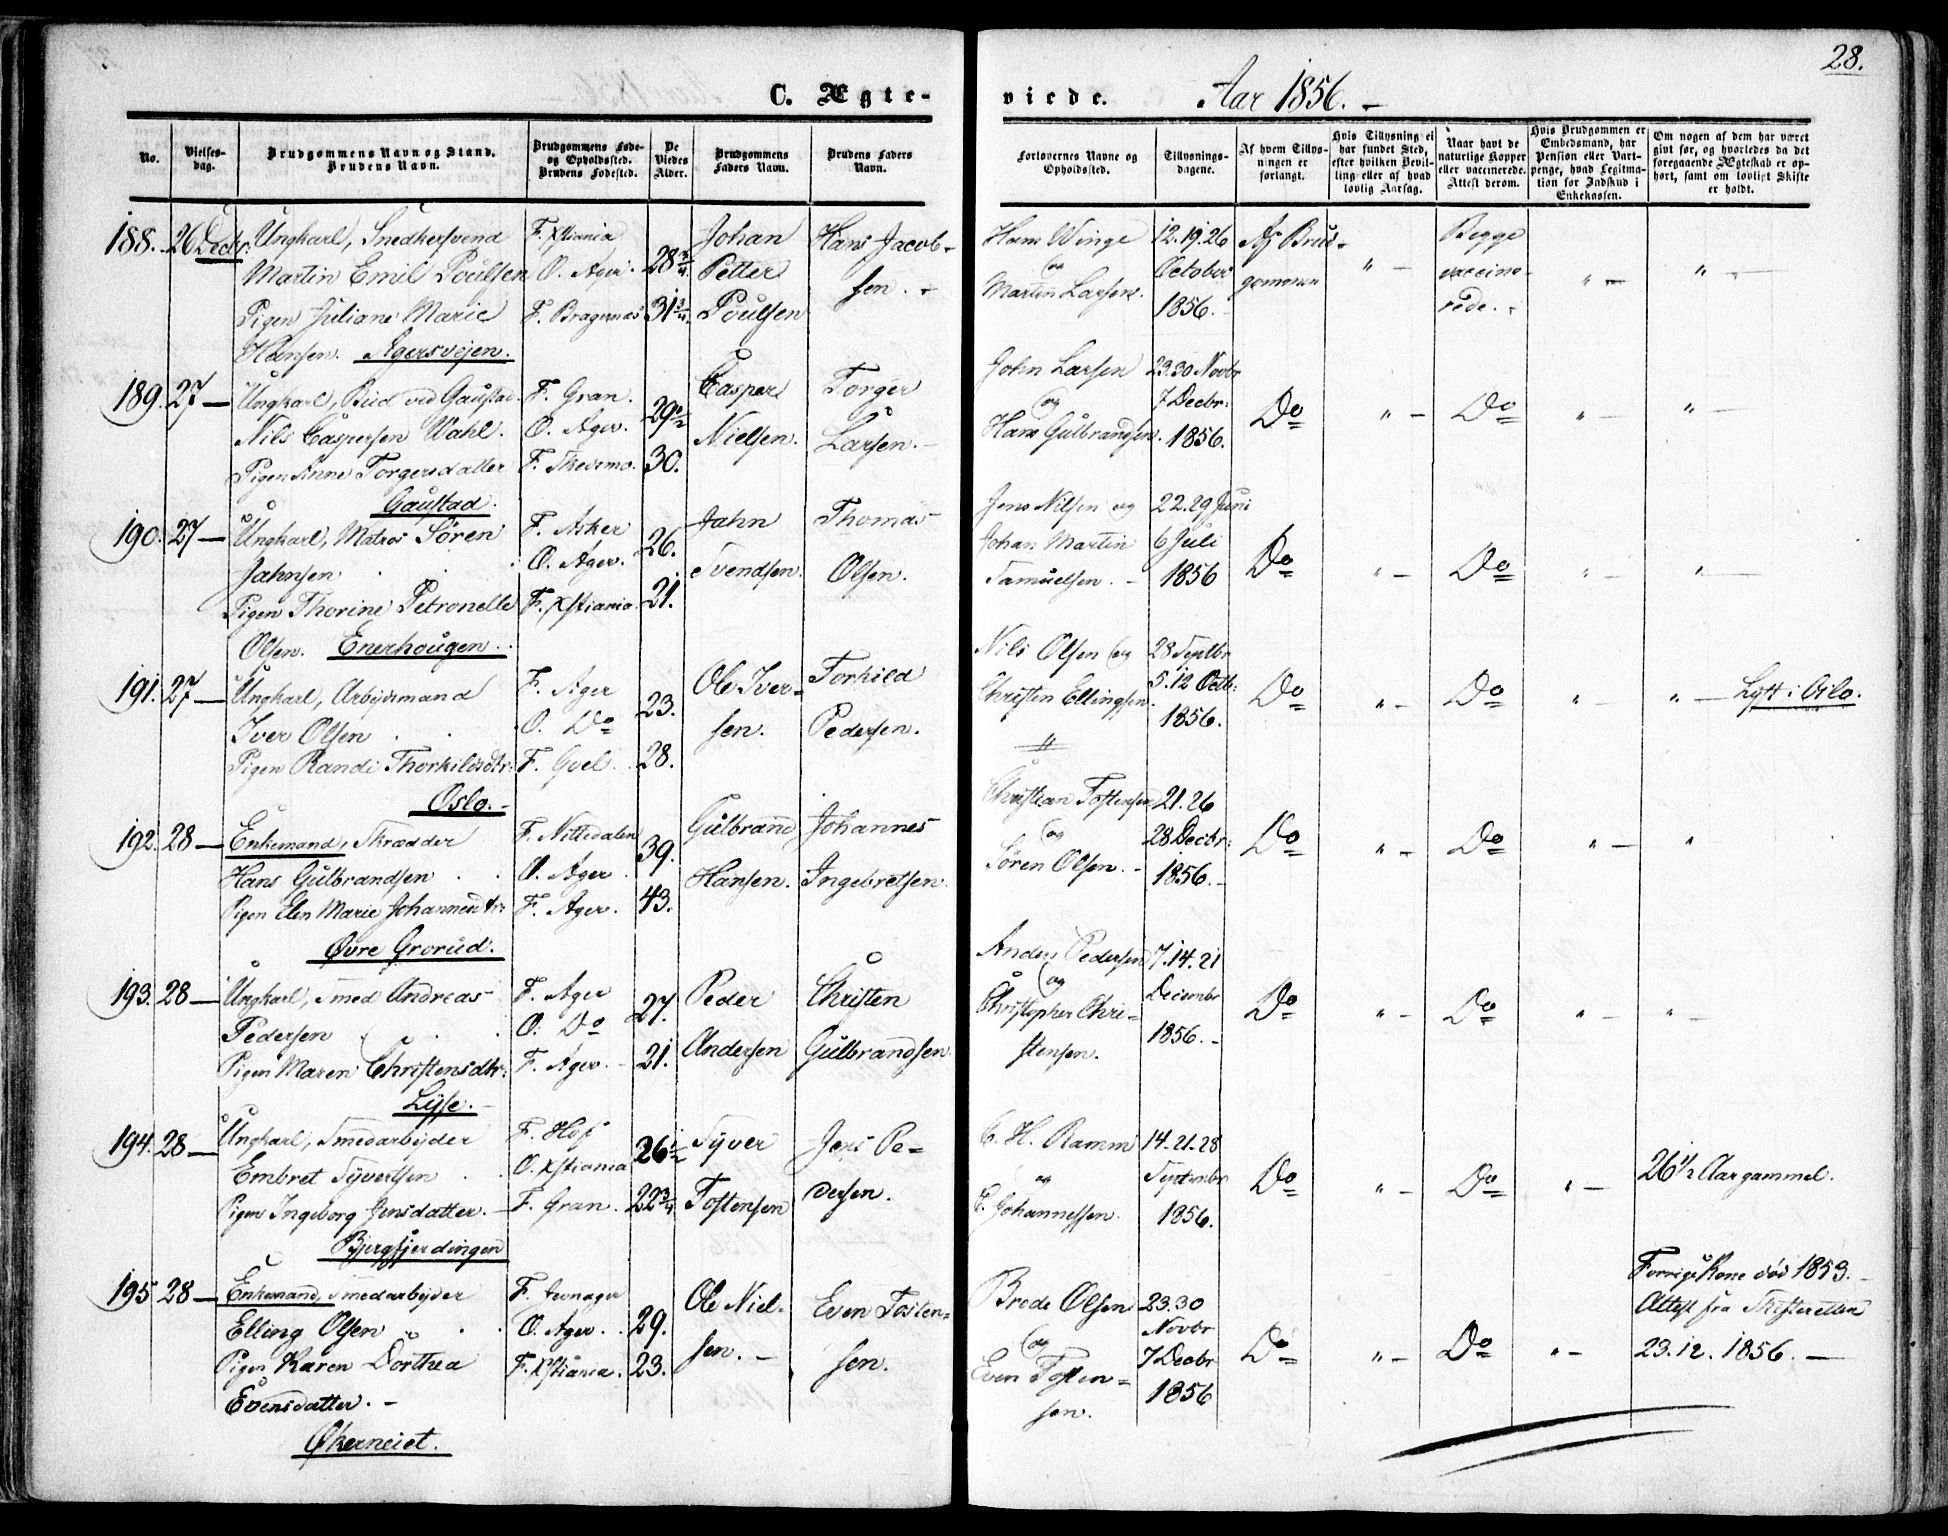 28.
C. Ægte-
viede. Aar 1856.
No.
Vielses-
dag.
Brudgommens Navn og Stand.
Brudens Navn.
Brudgommens Føde-
og Opholdssted.
Brudens Fødested.
De
Viedes
Alder.
Brudgommens
Faders Navn.
Brudens Faders
Navn.
Forlovernes Navne og
Opholdssted.
Tillysnings-
dagene.
Af hvem Tillys-
ningen er
forlangt.
Hvis Tillysning ei
har fundet Sted,
efter hvilken Bevil-
ling eller af hvad
lovlig Aarsag.
Naar havt de
naturlige Kopper
eller vaccinerede.
Attest derom.
Hvis Brudgommen er
Embedsmand, har
Pension eller Vart-
penge, hvad Legitima-
tion for Indskud i
Enkekassen.
Om nogen af dem har været
givt før, og hvorledes da det
foregaaende Ægteskab er op-
hørt, samt om lovligt Skifte
er holdt.
188. 26 Decbr: Ungkarl, Snedkersvend F. Xstiania 28 3/4 Johan Hans Jacob-
Martin Emil Poulsen O. Ager. Petter sen.
Pigen Juliane Marie F. Bragernæs 31 3/4. Poulsen
Hansen. Agersvejen.
Hans Winge 12. 19. 26 Af Brud- " Begge " "
og October gommen vaccine-
Martin Larsen. 1856. rede.
189. 27 Ungkarl, Bud ved Gaustad F. Gran. 29 1/2 Casper Torger
Nils Caspersen Wahl. O. Ager. Nielsen. Larsen.
Pigen Anne Torgersdatter F. 30.
Gaustad.
John Larsen 23. 30 Novbr
og 7 Decbr: Do " Do " "
Hans Gulbrandsen. 1856.
190. 27 Ungkarl, Matros Sören F. Asker 26. Jahn Thomas
Jahnsen O. Ager. Svendsen. Olsen.
Pigen Thorine Petronelle F. Xstiania. 21.
Olsen. Enerhougen.
Jens Nilsen og 22. 29 Juni
Johan Martin 6 Juli Do " Do " "
Samuelsen. 1856
191. 27 Ungkarl, Arbejdsmand F. Ager 23. Ole Iver- Torkild
Iver Olsen O. Do sen. Pedersen.
Pigen Randi Thorkildsdtr: F. Goel. 28.
Oslo.
Nils Olsen og 28 Septbr
Christen Ellingsen. 5. 12 Octb: Do " Do " " Lyst i Oslo.
" 1856.
192. 28 Enkemand, Skrædder F. Nittedalen 39. Gulbrand Johannes
Hans Gulbrandsen O. Ager Hansen. Ingebretsen.
Pigen Elen Marie Johannesdtr: F. Ager. 43.
Øvre Grorud.
Christian Tostensen 21. 26
og 28 Decbr: Do " Do " "
Søren Olsen. 1856.
193. 28 Ungkarl, Smed Andreas F. Ager 27. Peder Christen
Pedersen O. Do Andersen Gulbrandsen.
Pigen Maren Christensdtr: F. Ager. 21.
Lysse.
Anders Pedersen 7. 14. 21
og Decembr Do " Do " "
Christopher Chri-
stensen. 1856.
194. 28 Ungkarl, Smedarbejder F. Hof 26 1/2 Syver Jens Pe-
Embret Syvertsen O. Xstiania Tostensen dersen.
Pigen Ingeborg Jensdatter. F. Gran. 22 3/4
Bjergfjerdingen
C. H. Ramm 14. 21. 28
og Septembr Do " Do " 26 1/2 Aar gammel.
C. Johannessen. 1856.
195 28 Enkemand, Smedarbejder F. Jevnager 29. Ole Niel- Even Tosten-
Elling Olsen O. Ager. sen. sen.
Pigen Karen Dorthea F. Xstiania. 23.
Evensdatter.
Økerneiet.
Brede Olsen 23. 30 Forrige Kone död 1853.
og Novbr Attest fra Skifteretten
Even Tosten- 7 Decbr Do " Do " 23. 12. 1856.
sen. 1856